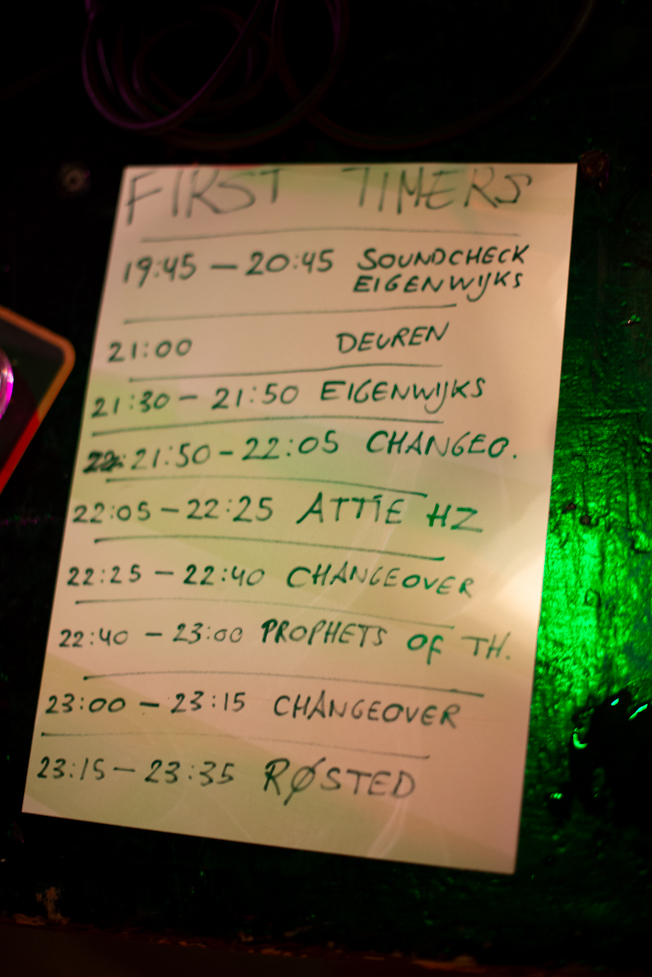 FIRST TIMERS
19:45 – 20:45 SOUNDCHECK
EIGENWIJKS
21:00 DEUREN
21:30 – 21:50 EIGENWIJKS
21:50 – 22:05 CHANGEO.
22:05 – 22:25 ATTIE HZ
22:25 – 22:40 CHANGEOVER
22:40 – 23:00 PROPHETS OF TH.
23:00 – 23:15 CHANGEOVER
23:15 – 23:35 RØSTED